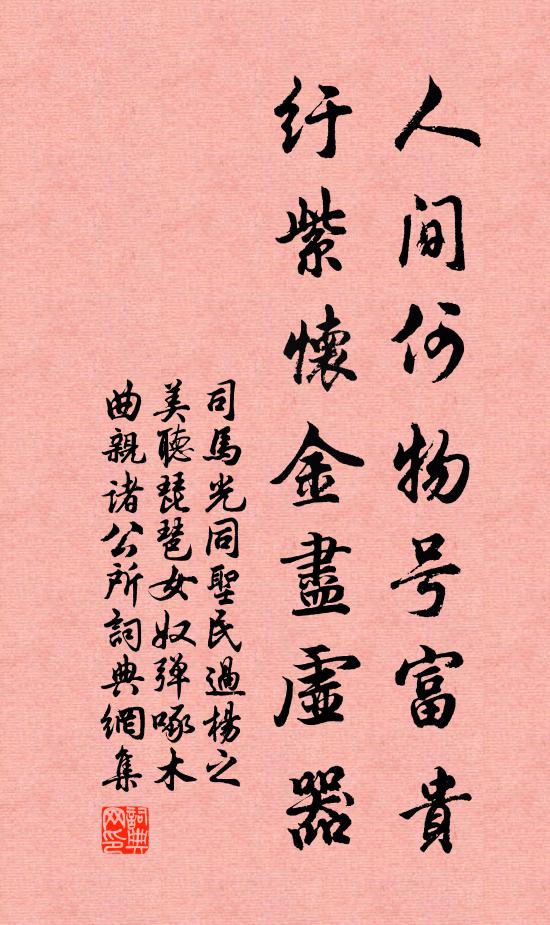 人间何物号富貴
紆紫懷金盡虛器
司馬光同聖民過楊之
美聽琵琶女奴弹啄木
曲親诸公所詞典網集
詞典
网印